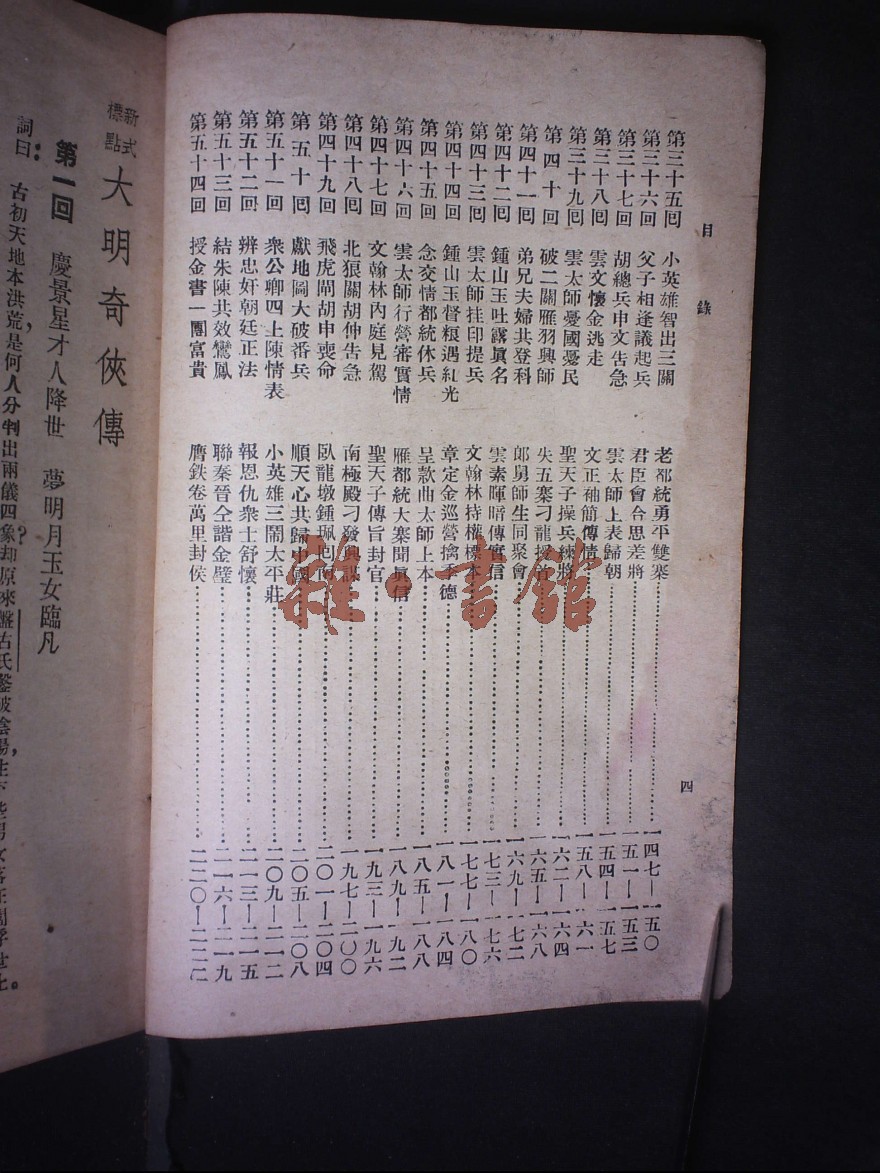 目錄
第三十五囘 小英雄智出三關 老都統勇平雙寨 一四七—一五〇
第三十六囘 父子相逢議起兵 君臣會合思差將 一五一—一五三
第三十七囘 胡總兵申文告急 雲太師上表歸朝 一五四—一五七
第三十八囘 雲文懷金逃走 文正袖簡傳情 一五八—一六一
第三十九囘 雲太師憂國憂民 聖天子操兵練將 一六二—一六四
第四十囘 破二關雁羽興師 失五寨刁龍授首 一六五—一六八
第四十一囘 弟兄夫婦共登科 郎舅師生同聚會 一六九—一七二
第四十二囘 鍾山玉吐露眞名 雲素暉暗傳實信 一七三—一七六
第四十三囘 雲太師挂印提兵 文翰林持權標本 一七七—一八〇
第四十四囘 鍾山玉督粮遇紅光 章定金巡營擒季德 一八一—一八四
第四十五囘 念交情都統休兵 呈款曲太師上本 一八五—一八八
第四十六囘 雲太師行營審實情 雁都統大寨聞眞信 一八九—一九二
第四十七囘 文翰林內庭見駕 聖天子傳旨封官 一九三—一九六
第四十八囘 北狼關胡伸告急 南極殿刁發與謀 一九七—二〇〇
第四十九囘 飛虎閘胡申喪命 臥龍墩鍾珮囘南 二〇一—二〇四
第五十囘 獻地圖大破番兵 順天心共歸中國 二〇五—二〇八
第五十一囘 衆公卿四上陳情表 小英雄三鬧太平莊 二〇九—二一二
第五十二囘 辨忠奸朝廷正法 報恩仇衆士舒懷 二一三—二一五
第五十三囘 結朱陳共效鸞鳳 聯秦晉全諧金璧 二一六—二一九
第五十四囘 授金書一團富貴 膺鉄卷萬里封侯 二二〇—二二二
四
雜·書館
新式標點 大明奇俠傳
第一囘 慶景星才人降世 夢明月玉女臨凡
詞曰：古初天地本洪荒，是何人分判出兩儀四象？却原來盤古氏鑿破陰陽，生下